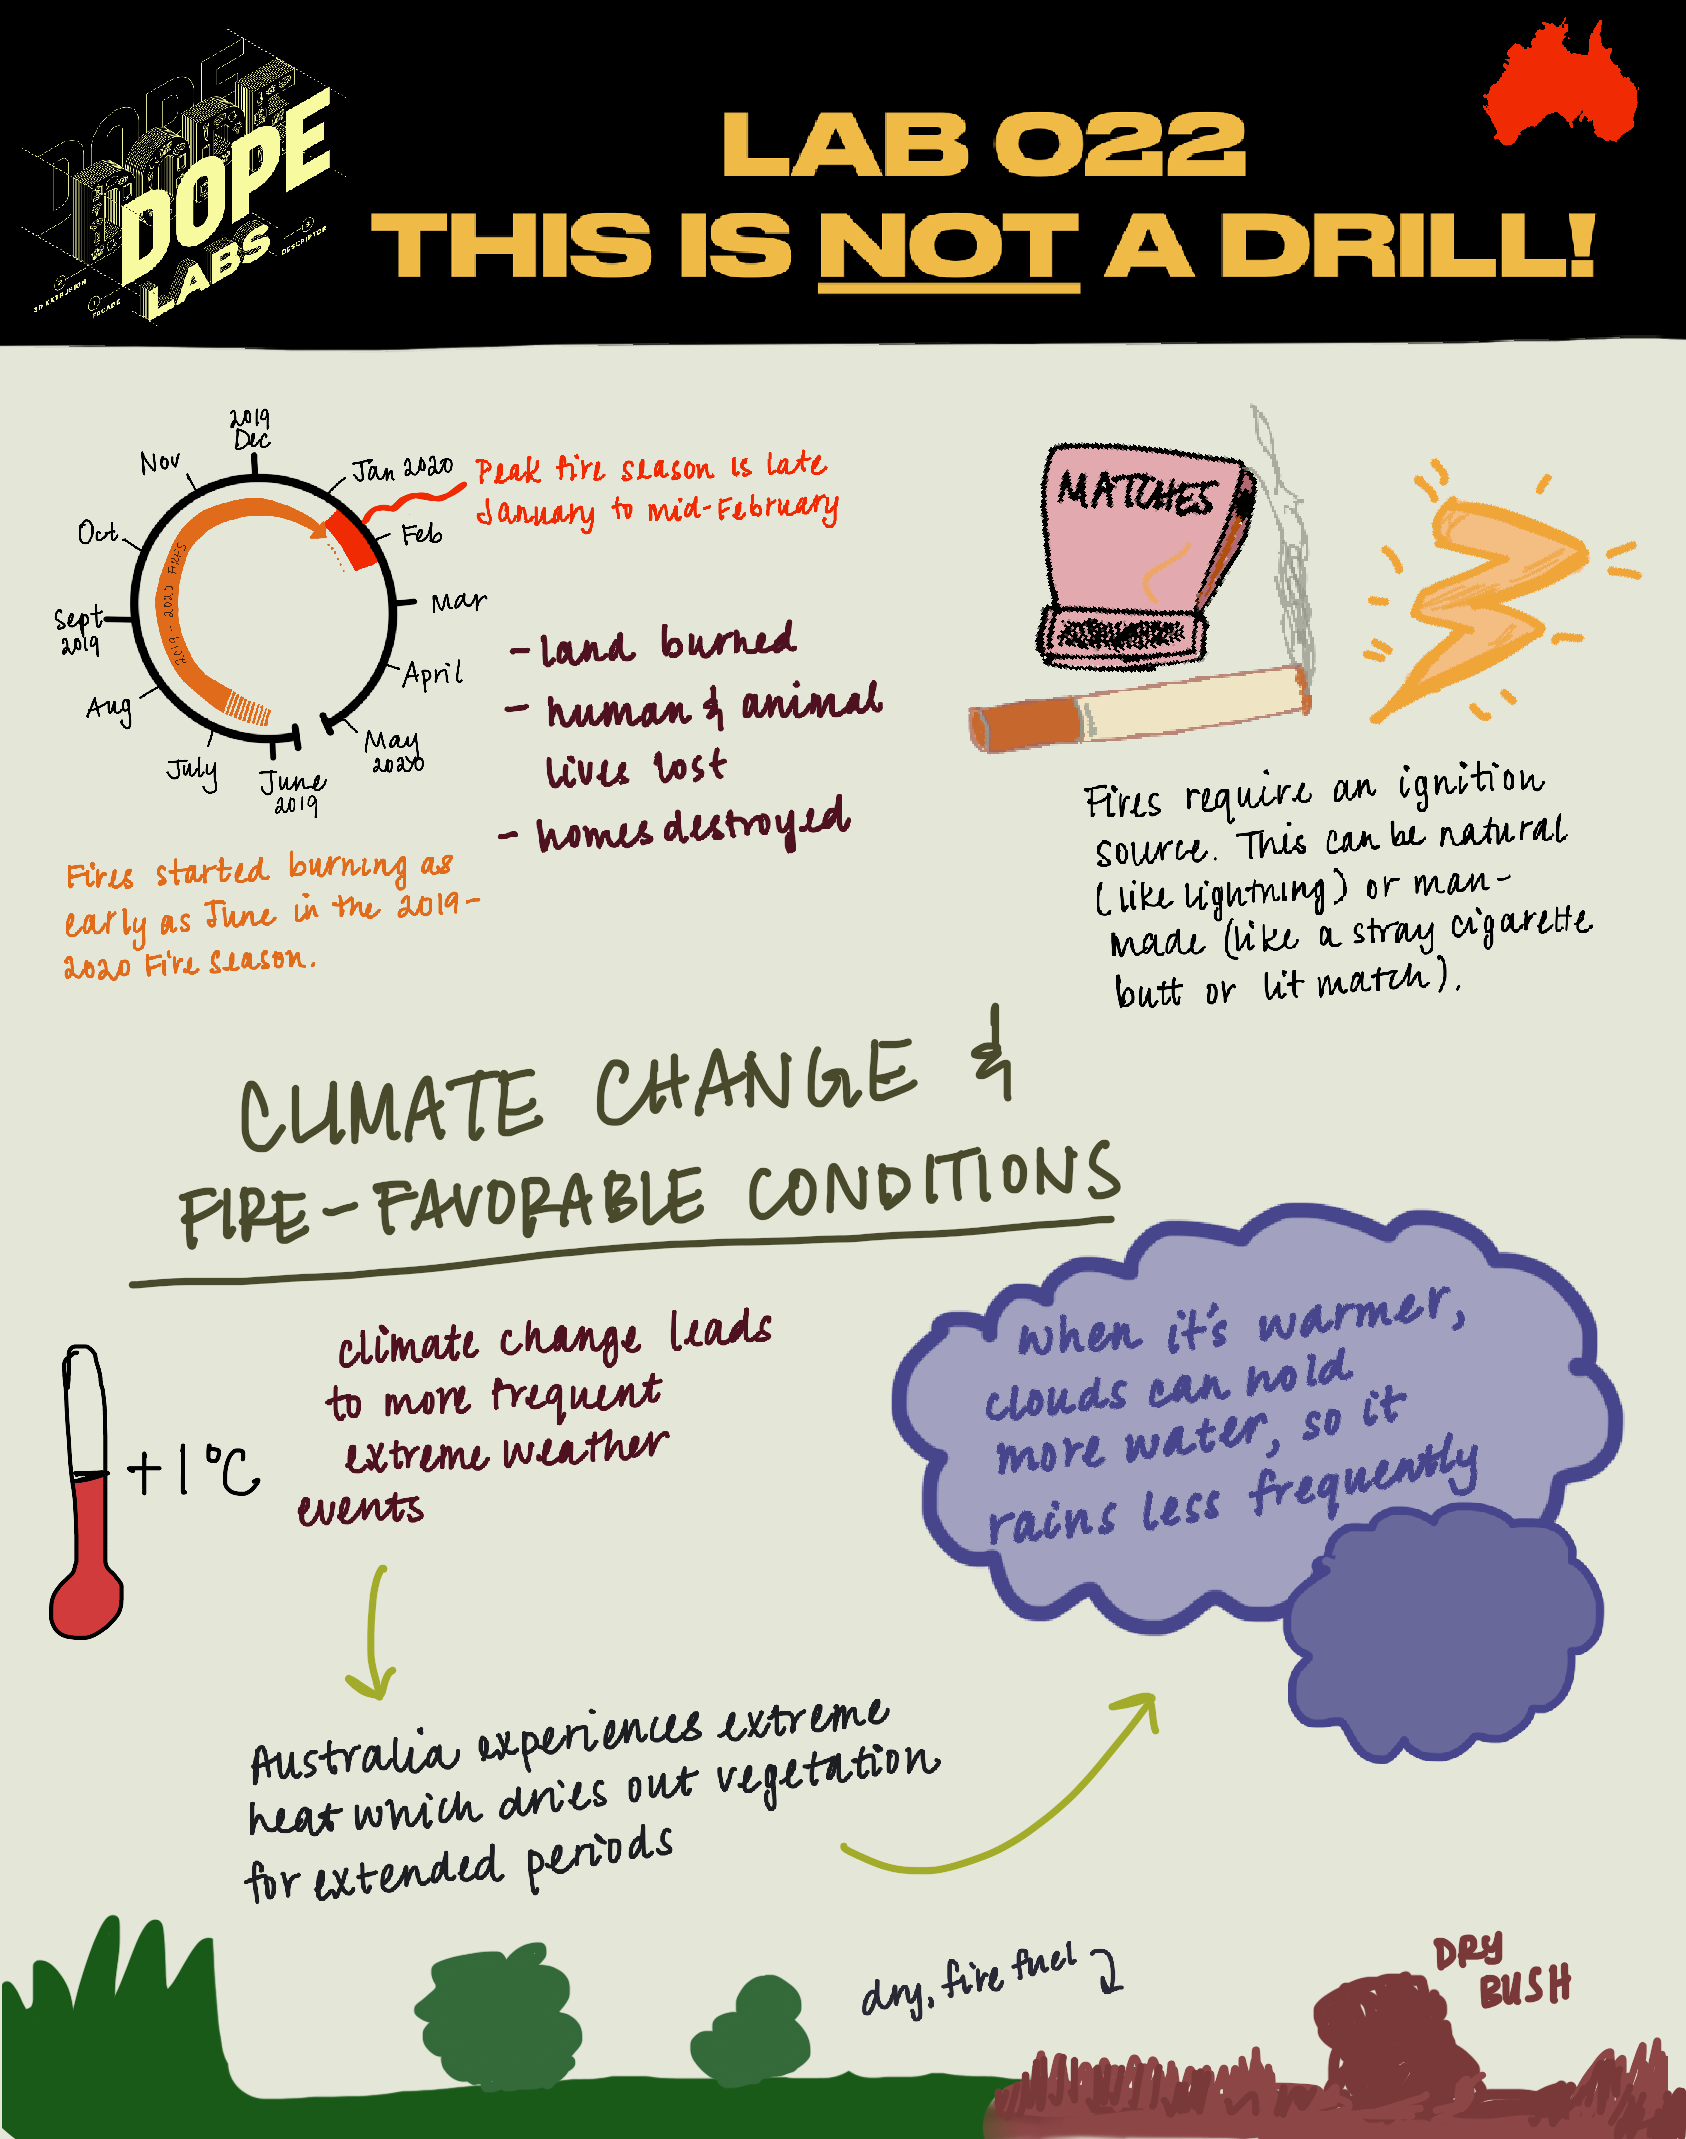 DOPE
LABS
DESCRIPTOR
LAB 022
THIS IS NOT A DRILL!
2019
Dec
Nov
Jan 2020
Oct
Feb
Sept
2019
Mar
Aug
April
July
May
2020
June
2019
2019-2020 FIRES
Peak fire season is late
January to mid-February
Fires started burning as
early as June in the 2019-
2020 Fire season.
- land burned
- human & animal
lives lost
- homes destroyed
MATCHES
Fires require an ignition
source. This can be natural
(like lightning) or man-
made (like a stray cigarette
butt or lit match).
CLIMATE CHANGE &
FIRE-FAVORABLE CONDITIONS
+1°C
climate change leads
to more frequent
extreme weather
events
when it's warmer,
clouds can hold
more water, so it
rains less frequently
Australia experiences extreme
heat which dries out vegetation
for extended periods
dry, fire fuel
DRY
BUSH